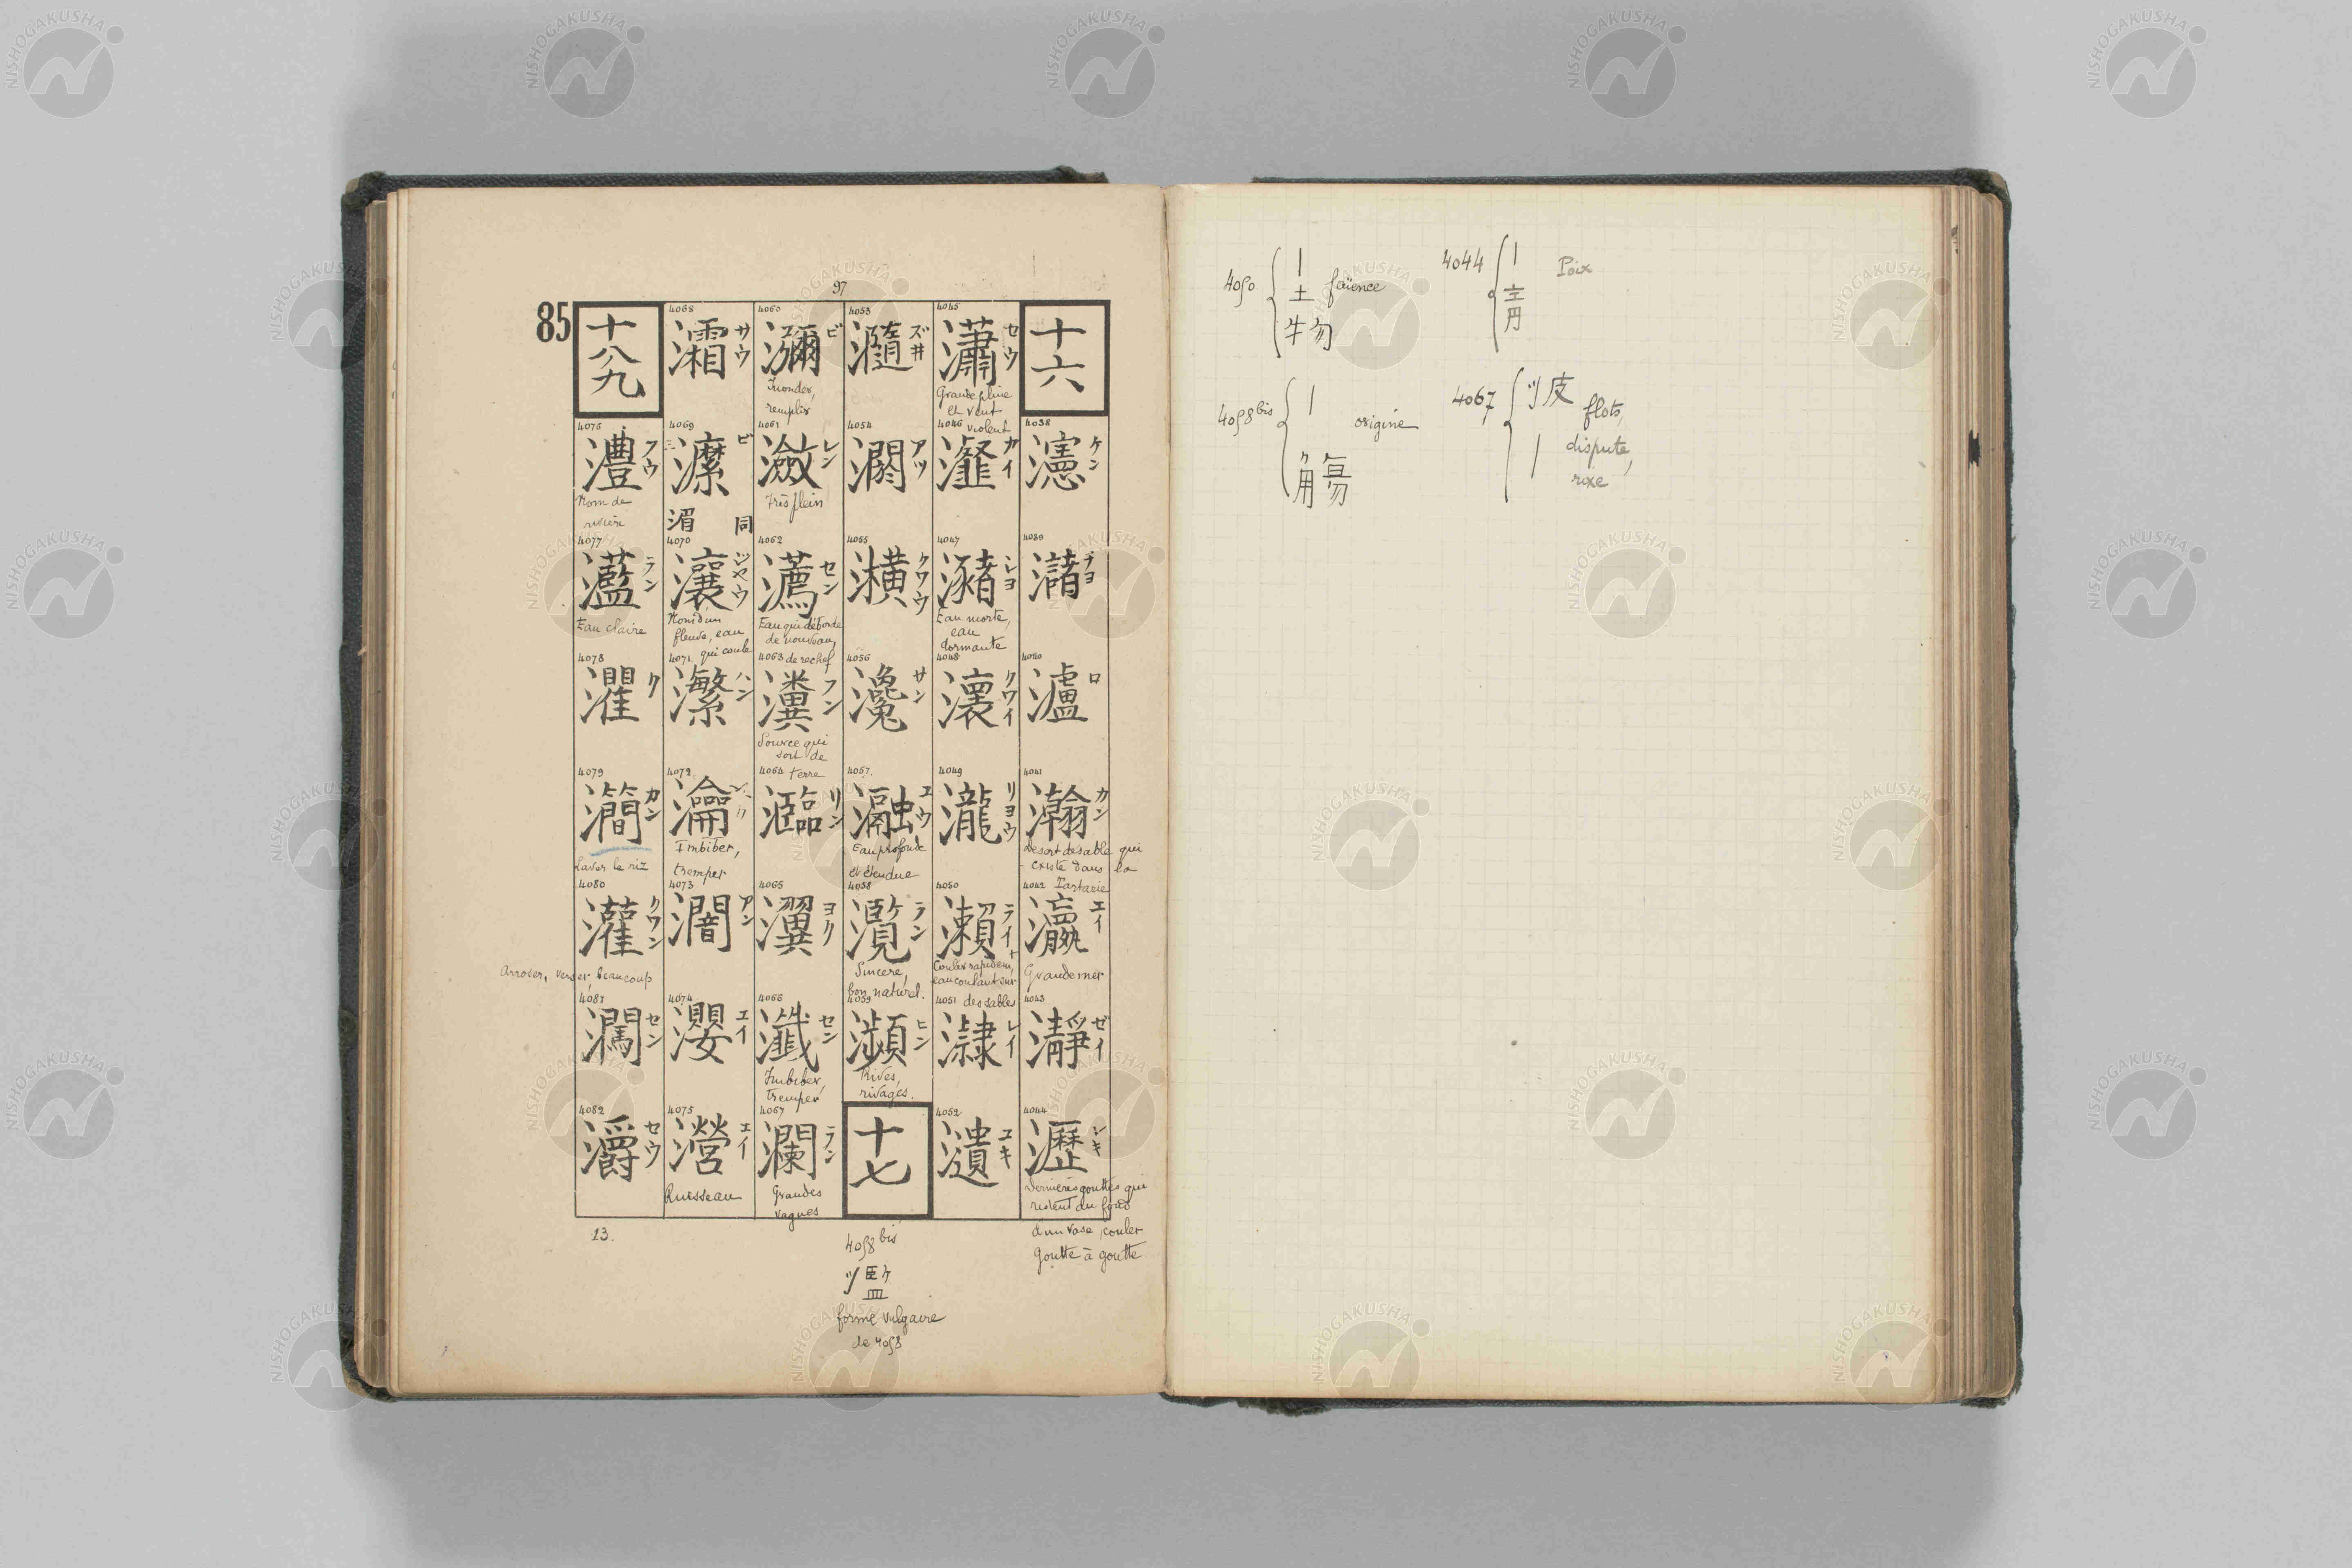 97
85
十六
4038 濦 ケン
4039 瀦 チヨ
4040 瀘 ロ
4041 瀚 カン
Désert de sable qui
existe dans la
Tartarie
4042 瀛 エイ
Grande mer
4043 瀞 ゼイ
4044 瀝 レキ
Dernières gouttes qui
restent au fond
d'un vase, couler
goutte à goutte
4045 瀟 セウ
Grande pluie
et vent
violent
4046 瀣 カイ
4047 瀦 シヨ
Eau morte,
eau
dormante
4048 瀤 クワイ
4049 瀧 リヨウ
4050 瀨 ライ
Couler rapidem,
eau coulant sur
des sables
4051 濋 レイ
4052 瀢 ユキ
4053 瀡 ズ井
4054 瀱 アツ
4055 瀇 クワウ
4056 瀺 サン
4057 瀜 ユウ
Eau profonde
et étendue
4058 灠 ラン
Sincère,
bon naturel.
4059 瀕 ヒン
Rives,
rivages.
十七
4060 瀰 ビ
Inonder,
remplir
4061 瀲 レン
Très plein
4062 瀳 セン
Eau qui déborde
de nouveau,
de rechef
4063 瀵 フン
Source qui
sort de
terre
4064 瀶 リン
4065 瀷 ヨク
4066 瀸 セン
Imbiber,
tremper
4067 瀾 ラン
Grandes
vagues
4068 灀 サウ
4069 灖 ビ
湄 同
4070 瀼 ジヤウ
Nom d'un
fleuve, eau
qui coule
4071 瀿 ハン
4072 瀹
Imbiber,
tremper
4073 濶 アン
4074 瀴 エイ
4075 瀯 エイ
Ruisseau
十八九
4076 灃 フウ
Nom de
rivière
4077 灆 ラン
Eau claire
4078 灈 ク
4079 灡 カン
Laver le riz
4080 灌 クワン
Arroser, verser, beaucoup
4081 灍 セン
4082 灂 セウ
13.
4058 bis
濫
forme vulgaire
de 4058
4050 { | 土 faïence
牜勿
4058 bis { | origine
觴
4044 { | Poix
靑
4067 { 波 | flots,
dispute,
rixe